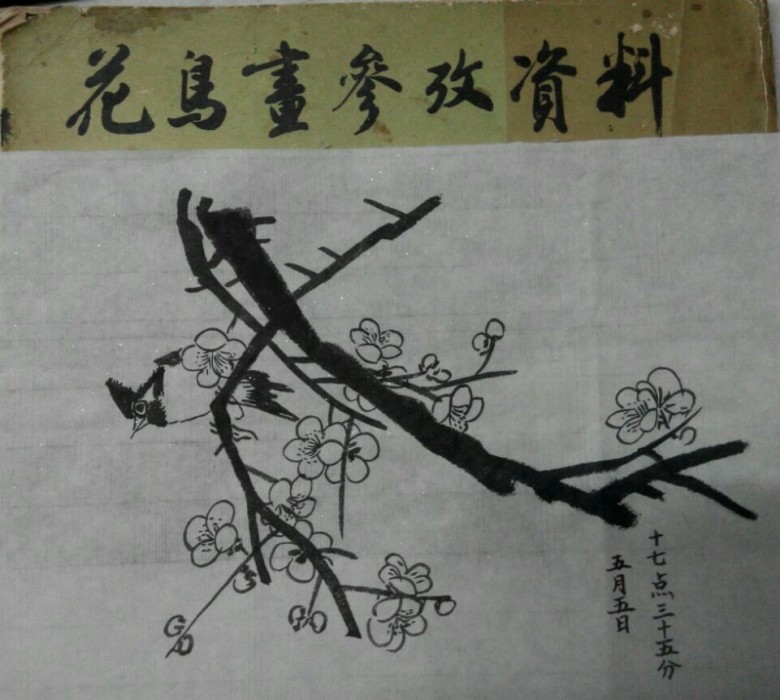 花鳥畫參攷資料
十七点三十五分
五月五日